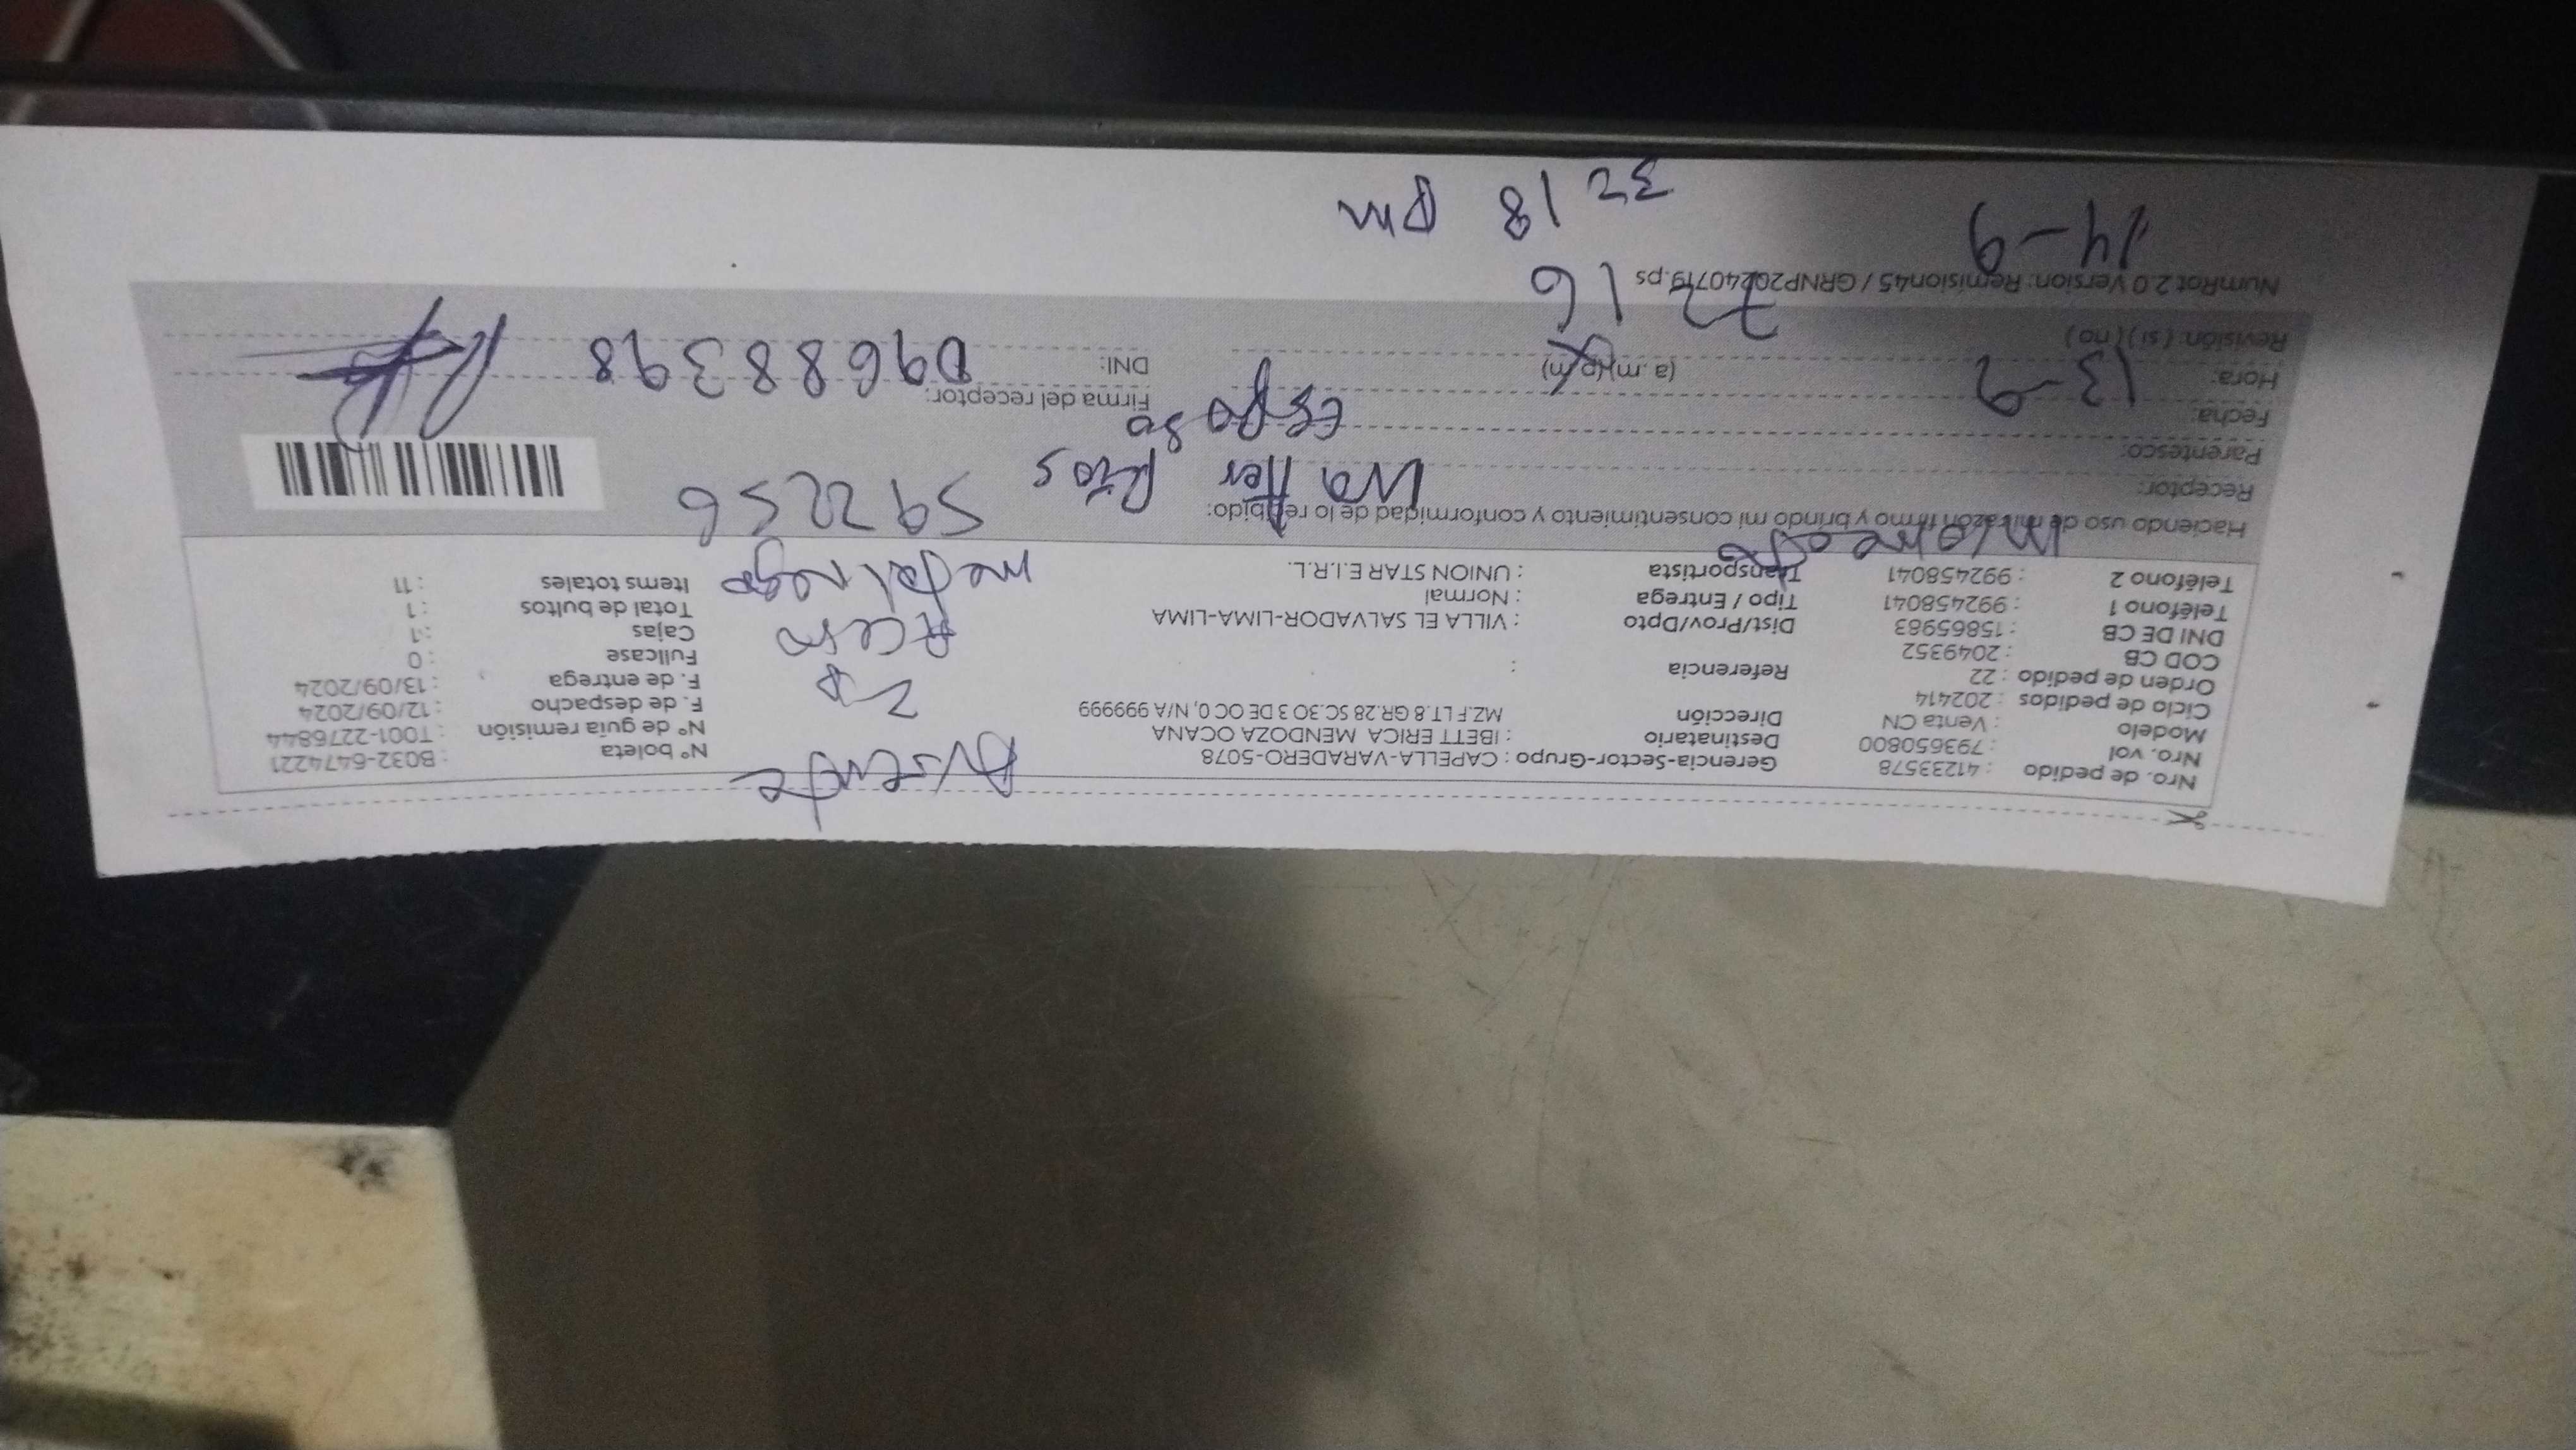 Nro. de pedido : 41233578 Gerencia-Sector-Grupo : CAPELLA-VARADERO-5078 Ausente Nº boleta : B032-6474221
Nro. vol : 793650800 Destinatario : IBETT ERICA MENDOZA OCANA Nº de guía remisión : T001-2276844
Modelo : Venta CN Dirección MZ.F LT.8 GR.28 SC.3O 3 DE OC 0, N/A 999999 2P F. de despacho : 12/09/2024
Ciclo de pedidos : 202414 F. de entrega : 13/09/2024
Orden de pedido : 22 Referencia : Fullcase : 0
COD CB : 2049352 Cajas : 1
DNI DE CB : 15865983 Dist/Prov/Dpto : VILLA EL SALVADOR-LIMA-LIMA Total de bultos : 1
Teléfono 1 : 992458041 Tipo / Entrega : Normal metal negro Items totales : 11
Teléfono 2 : 992458041 Transportista : UNION STAR E.I.R.L.
Haciendo uso de mi razón firmo y brindo mi consentimiento y conformidad de lo recibido: 592256
Receptor: Walter Rios
Parentesco: esposo
Fecha: 13-9 Firma del receptor:
Hora: (a.m)(p.m) DNI: 09688398
Revisión: ( si ) ( no )
NumRot 2.0 Version: Remision45 / GRNP20240719.ps 16
14-9 18 Pm